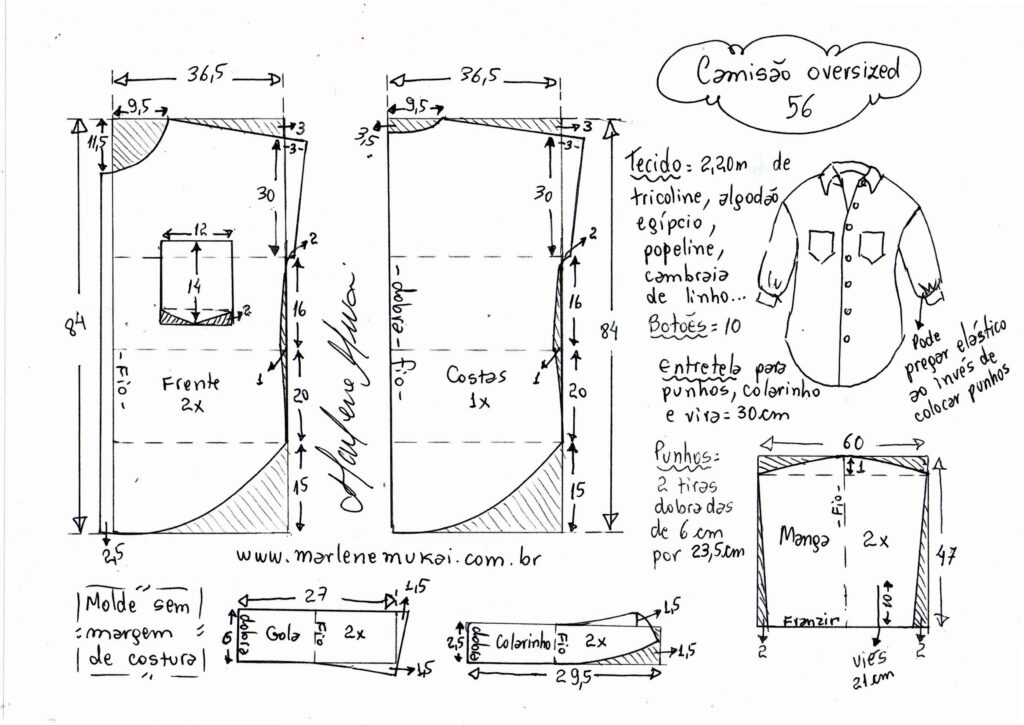 Camisão oversized
56
36,5
9,5
11,5
3
3
30
2
12
14
2
16
84
1
Fio
Frente
2x
20
15
2,5
36,5
9,5
3,5
3
3
30
2
dobra - fio -
16
84
1
Costas
1x
20
15
Marlene Mukai
Tecido = 2,20m de
tricoline, algodão
egípcio,
popeline,
cambraia
de linho...
Botões = 10
Entretela para
punhos, colarinho
e vira = 30cm
Punhos =
2 tiras
dobradas
de 6 cm
por 23,5cm
Pode
pregar elástico
ao invés de
colocar punhos
60
1
Fio
Manga
2x
47
10
Franzir
2
2
viés
21cm
www.marlenemukai.com.br
Molde sem
margem
de costura
27
1,5
dobra
Gola
Fio
2x
1,5
1,5
2,5
dobra
Colarinho
Fio
2x
1,5
29,5